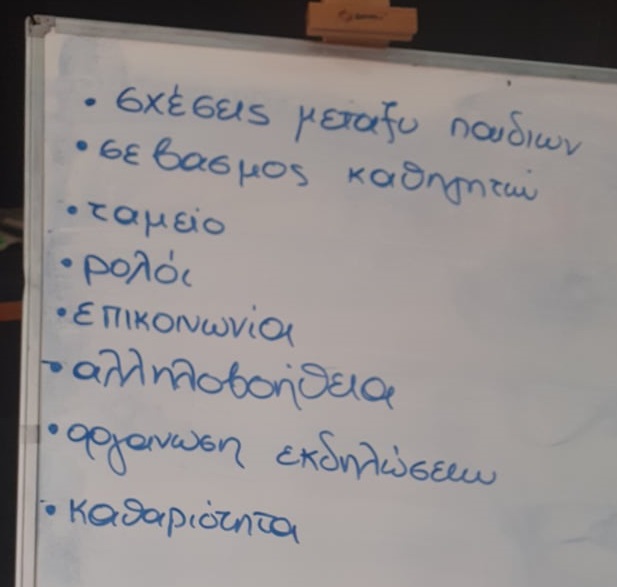 • σχέσεις μεταξυ παιδιων
• σεβασμος καθηγητών
• ταμείο
• ρολόι
• επικονωνία
• αλληλοβοήθεια
• οργανωση εκδηλώσεων
• καθαριότητα